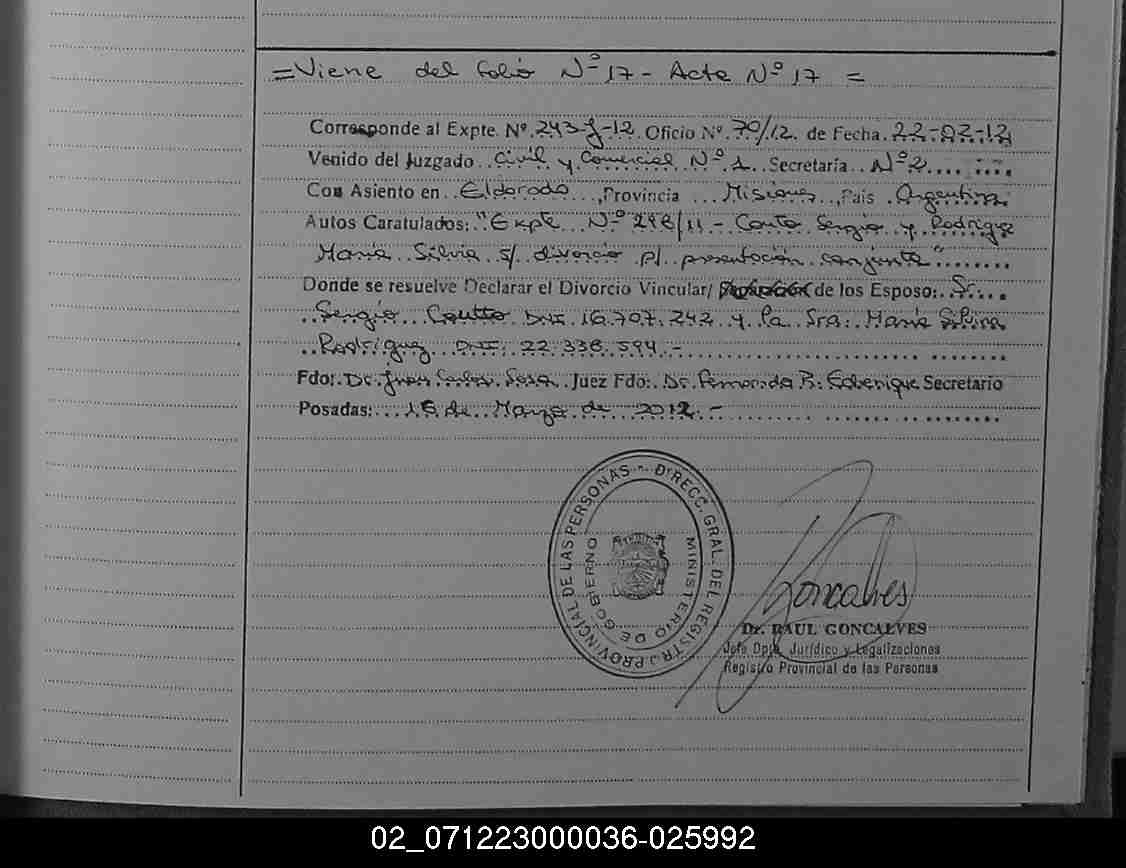 =Viene del folio Nº 17 - Acta Nº 17 =
Corresponde al Expte. Nº. 243-J-12. Oficio Nº. 70/12. de Fecha. 22-02-12
Venido del Juzgado. Civil y Comercial Nº 1. Secretaría. Nº 2.
Con Asiento en. Eldorado. , Provincia Misiones. , Pais. Argentina
Autos Caratulados: "Expte Nº 298/11 - Couto Sergio y Rodriguez
María Silvia s/ divorcio p/ presentación conjunta"
Donde se resuelve Declarar el Divorcio Vincular/ de los Esposo: Sr.
Sergio Coutto DNI. 16.707.242 y la Sra: María Silvia
Rodríguez DNI: 22.338.594.-
Fdo: Dr. Juan Carlos Sosa. Juez Fdo: Dr. Secretario
Posadas: 16 de Mayo de 2012.-
DIRECC. GRAL. DEL REGISTRO PROVINCIAL DE LAS PERSONAS -
MINISTERIO DE GOBIERNO
Goncalves
Dr. RAUL GONCALVES
Jefe Dpto. Jurídico y Legalizaciones
Registro Provincial de las Personas
02_071223000036-025992